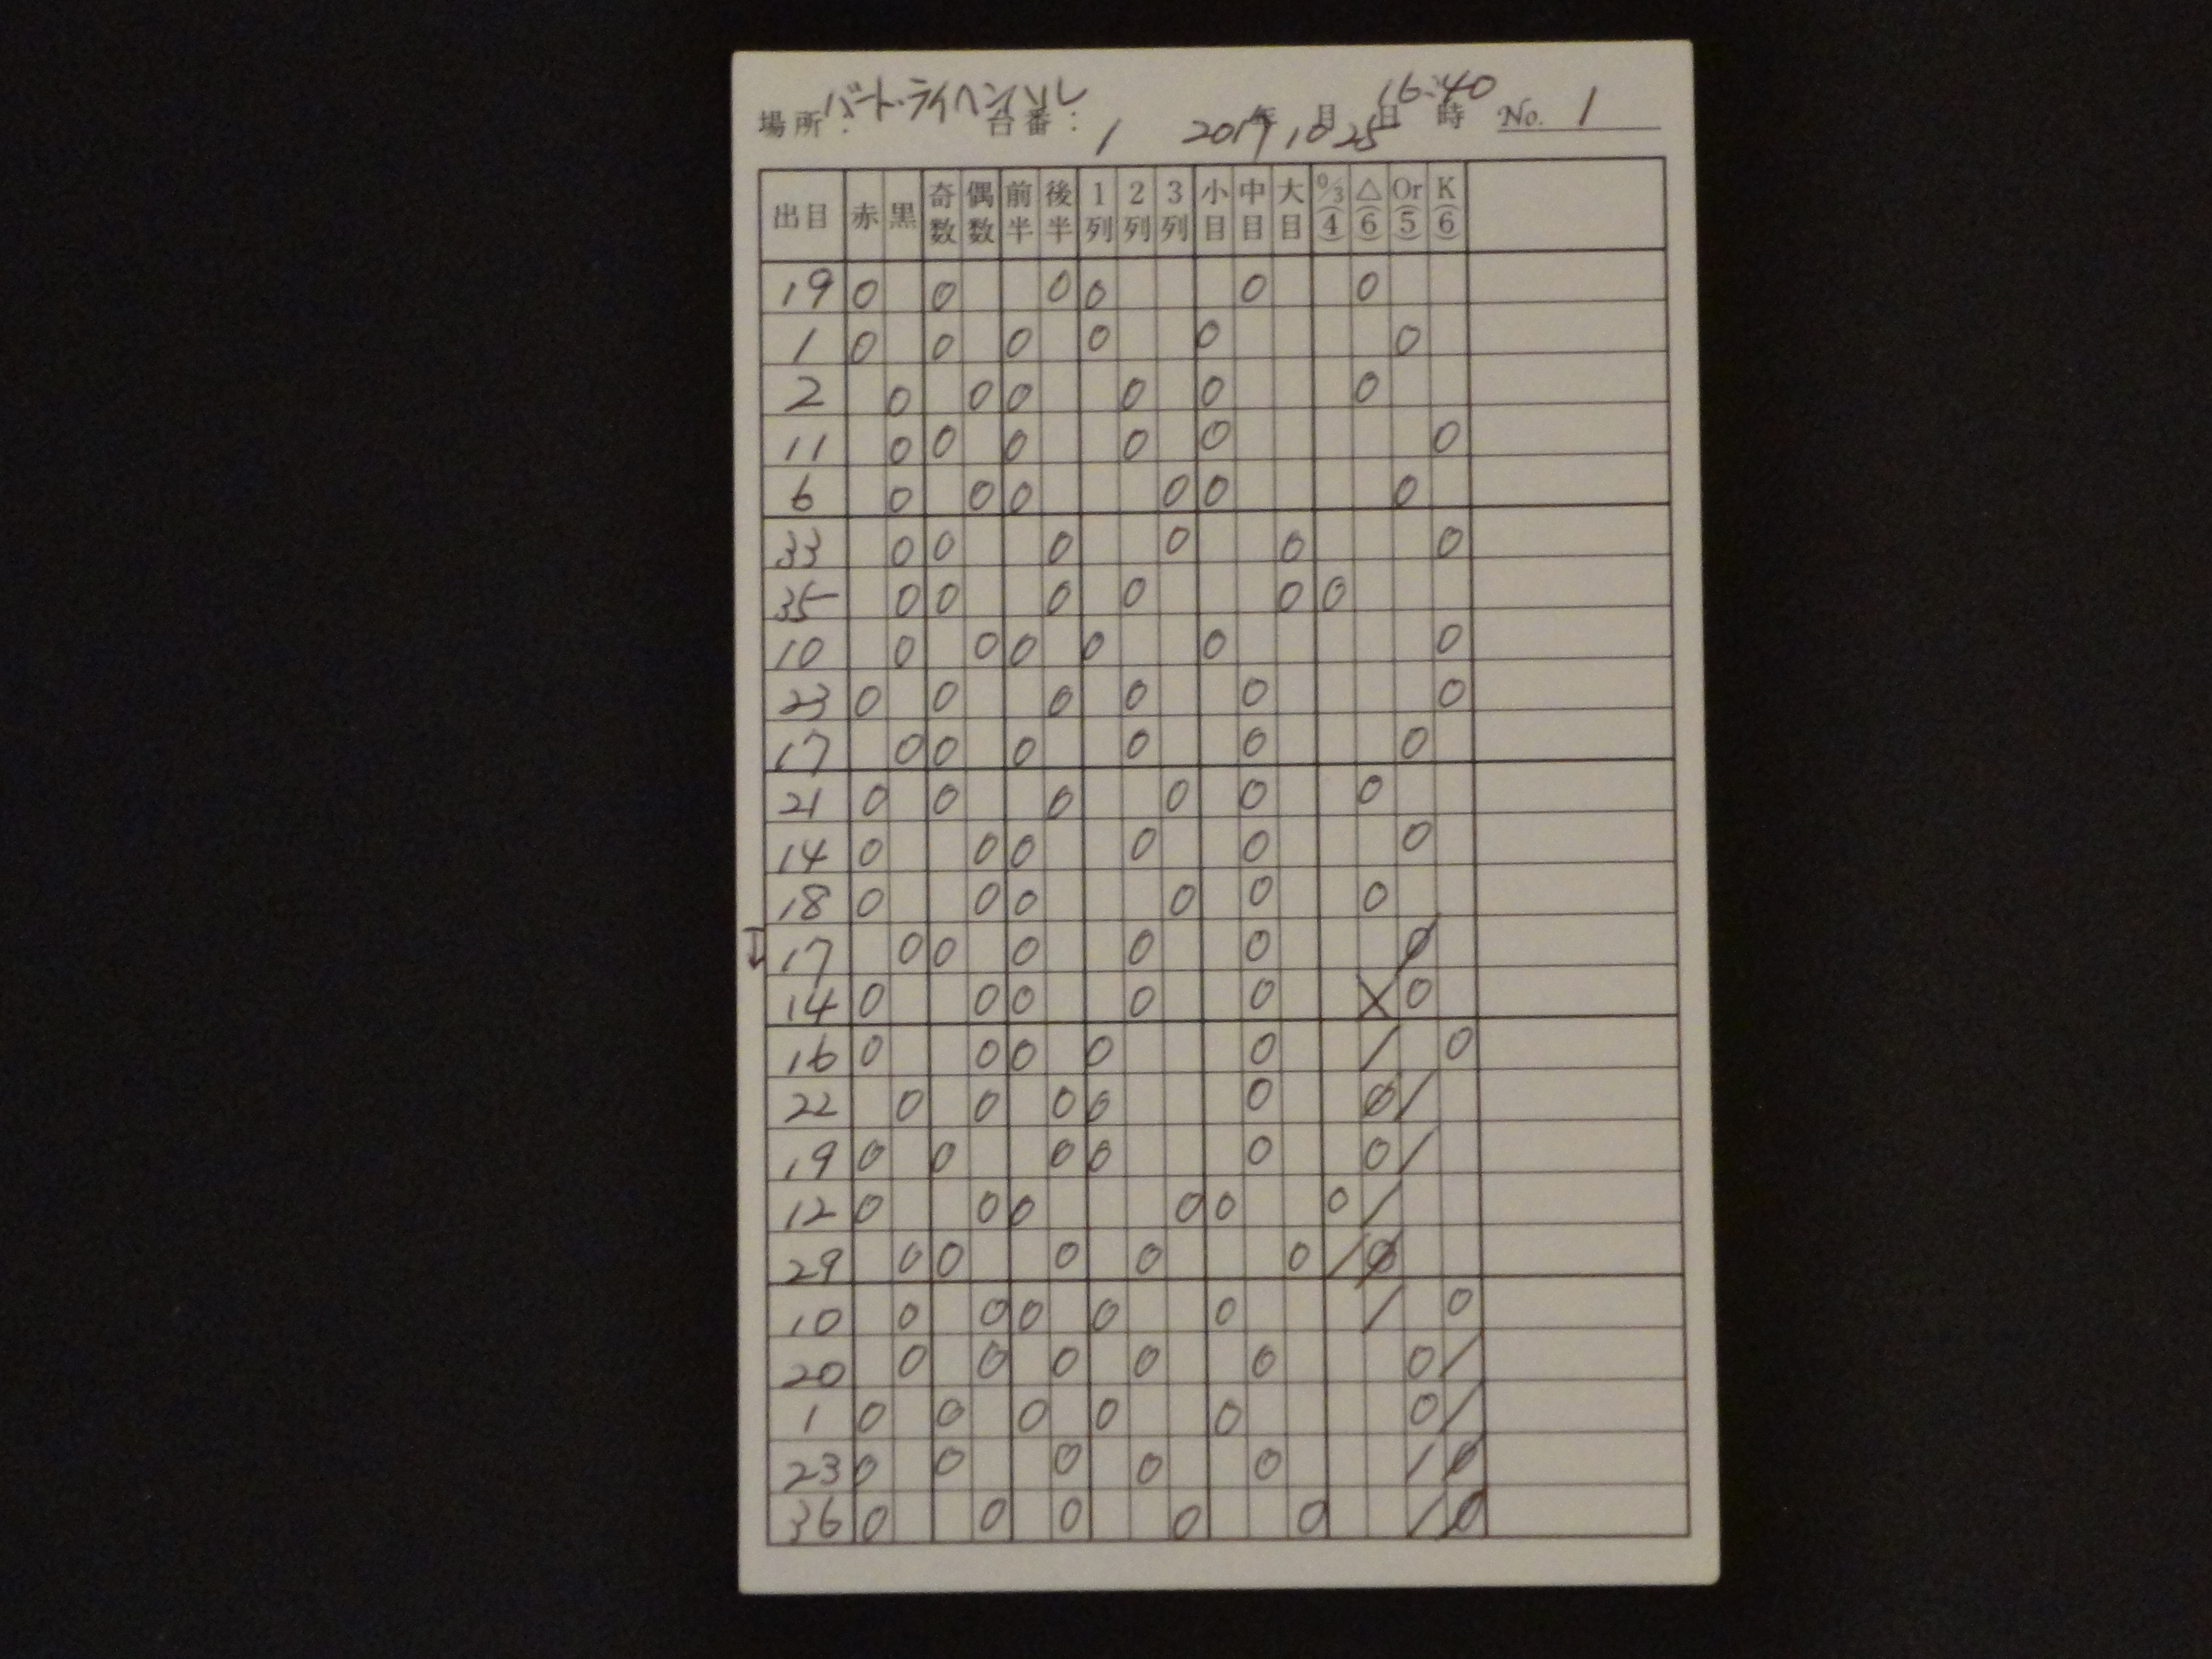 バート・ライヘンハル 16:40
場所: 台番: 年 月 日 時 No. 1
1 2017 10 25
出目 赤 黒 奇数 偶数 前半 後半 1列 2列 3列 小目 中目 大目 0/3(4) △(6) Or(5) K(6)
19 0 0 0 0 0 0
1 0 0 0 0 0 0
2 0 0 0 0 0 0
11 0 0 0 0 0 0
6 0 0 0 0 0 0
33 0 0 0 0 0 0
35 0 0 0 0 0 0
10 0 0 0 0 0 0
23 0 0 0 0 0 0
17 0 0 0 0 0 0
21 0 0 0 0 0 0
14 0 0 0 0 0 0
18 0 0 0 0 0 0
↓ 17 0 0 0 0 0 0/
14 0 0 0 0 0 X 0
16 0 0 0 0 0 / 0
22 0 0 0 0 0 0/ /
19 0 0 0 0 0 0 /
12 0 0 0 0 0 0 /
29 0 0 0 0 0 / 0/
10 0 0 0 0 0 / 0
20 0 0 0 0 0 0 /
1 0 0 0 0 0 0 /
23 0 0 0 0 0 / 0/
36 0 0 0 0 0 / 0/